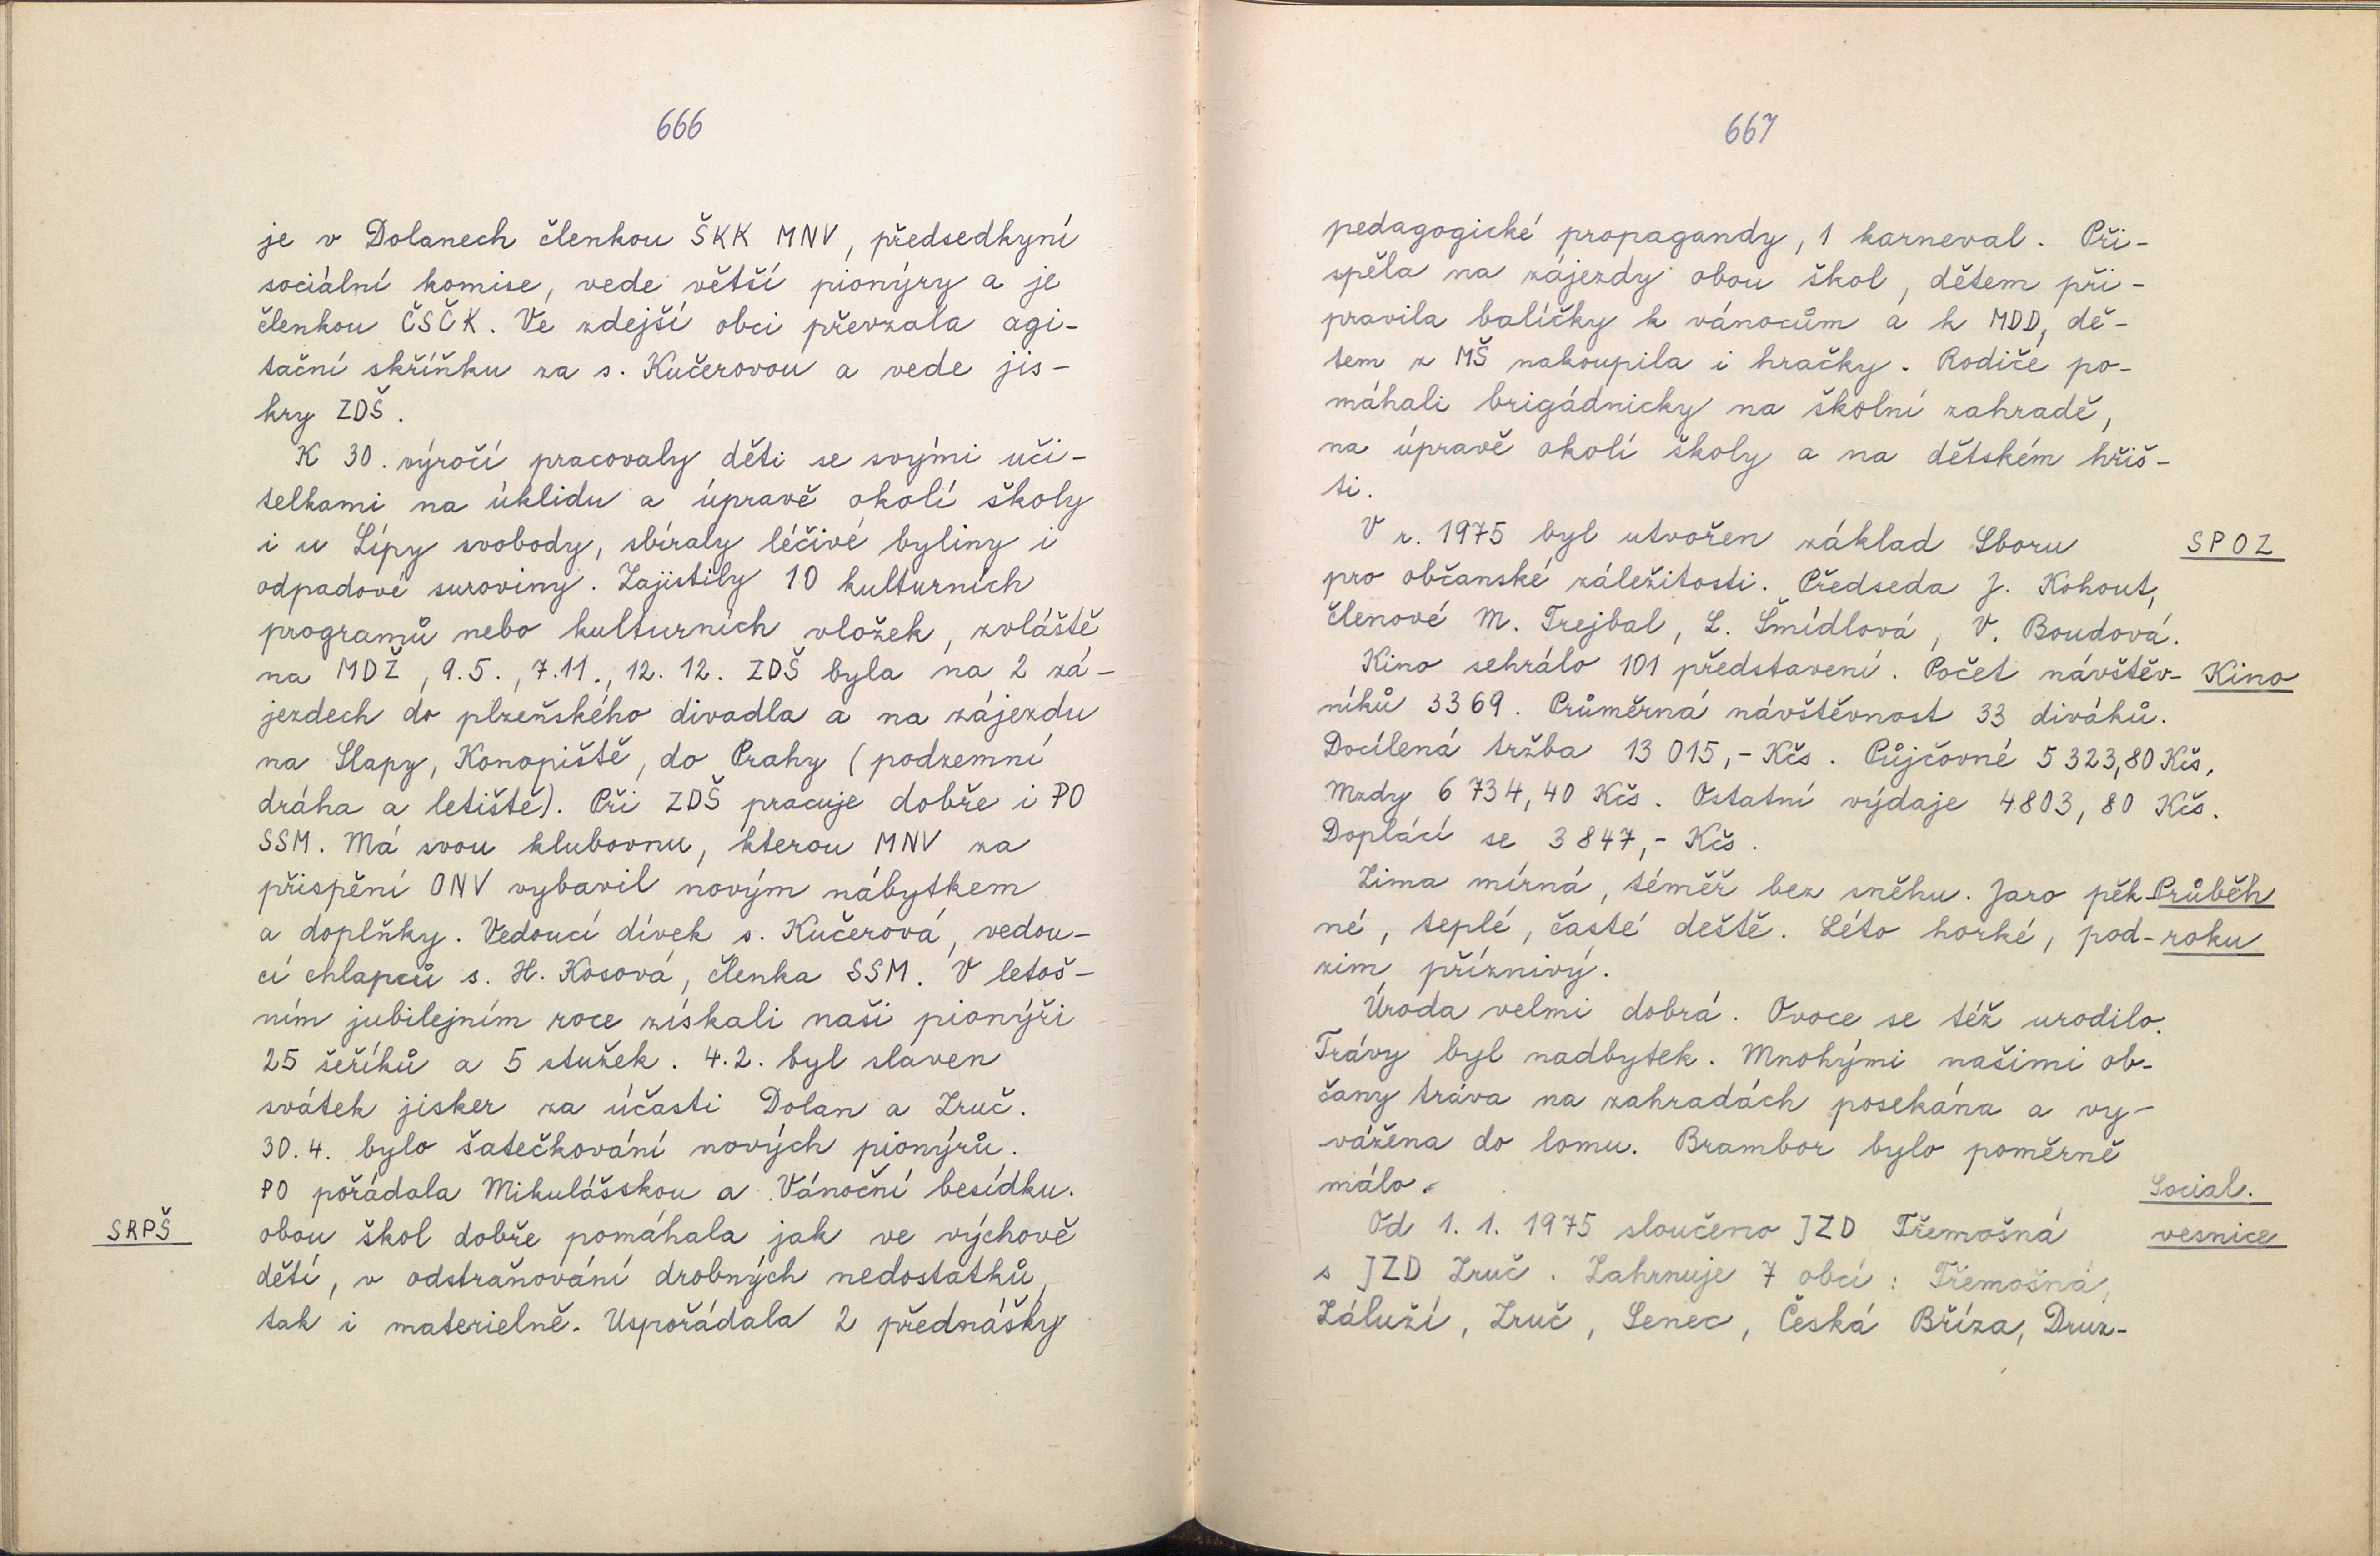 666
je v Dolanech členkou ŠKK MNV, předsedkyní
sociální komise, vede větší pionýry a je
členkou ČSČK. Ve zdejší obci převzala agi-
tační skříňku za s. Kučerovou a vede jis-
kry ZDŠ.
K 30. výročí pracovaly děti se svými uči-
telkami na úklidu a úpravě okolí školy
i u Lípy svobody, sbíraly léčivé byliny i
odpadové suroviny. Zajistily 10 kulturních
programů nebo kulturních vložek, zvláště
na MDŽ, 9.5., 7.11., 12.12. ZDŠ byla na 2 zá-
jezdech do plzeňského divadla a na zájezdu
na Slapy, Konopiště, do Prahy (podzemní
dráha a letiště). Při ZDŠ pracuje dobře i PO
SSM. Má svou klubovnu, kterou MNV za
přispění ONV vybavil novým nábytkem
a doplňky. Vedoucí dívek s. Kučerová, vedou-
cí chlapců s. H. Kosová, členka SSM. V letoš-
ním jubilejním roce získali naši pionýři
25 šeříků a 5 stužek. 4.2. byl slaven
svátek jisker za účasti Dolan a Zruč.
30.4. bylo šatečkování nových pionýrů.
PO pořádala Mikulášskou a Vánoční besídku.
SRPŠ obou škol dobře pomáhala jak ve výchově
dětí, v odstraňování drobných nedostatků,
tak i materielně. Uspořádala 2 přednášky
667
pedagogické propagandy, 1 karneval. Při-
spěla na zájezdy obou škol, dětem při-
pravila balíčky k vánocům a k MDD, dě-
tem z MŠ nakoupila i hračky. Rodiče po-
máhali brigádnicky na školní zahradě,
na úpravě okolí školy a na dětském hřiš-
ti.
V r. 1975 byl utvořen základ Sboru SPOZ
pro občanské záležitosti. Předseda J. Kohout,
členové M. Trejbal, L. Šmídlová, V. Boudová.
Kino sehrálo 101 představení. Počet návštěv- Kino
níků 3369. Průměrná návštěvnost 33 diváků.
Docílená tržba 13 015,- Kčs. Půjčovné 5 323,80 Kčs,
Mzdy 6 734,40 Kčs. Ostatní výdaje 4803,80 Kčs.
Doplácí se 3 847,- Kčs.
Zima mírná, téměř bez sněhu. Jaro pěk- Průběh
né, teplé, časté deště. Léto horké, pod- roku
zim příznivý.
Úroda velmi dobrá. Ovoce se též urodilo.
Trávy byl nadbytek. Mnohými našimi ob-
čany tráva na zahradách posekána a vy-
vážena do lomu. Brambor bylo poměrně
málo. Social.
Od 1. 1. 1975 sloučeno JZD Třemošná vesnice
s JZD Zruč. Zahrnuje 7 obcí: Třemošná,
Záluží, Zruč, Senec, Česká Bříza, Druz-